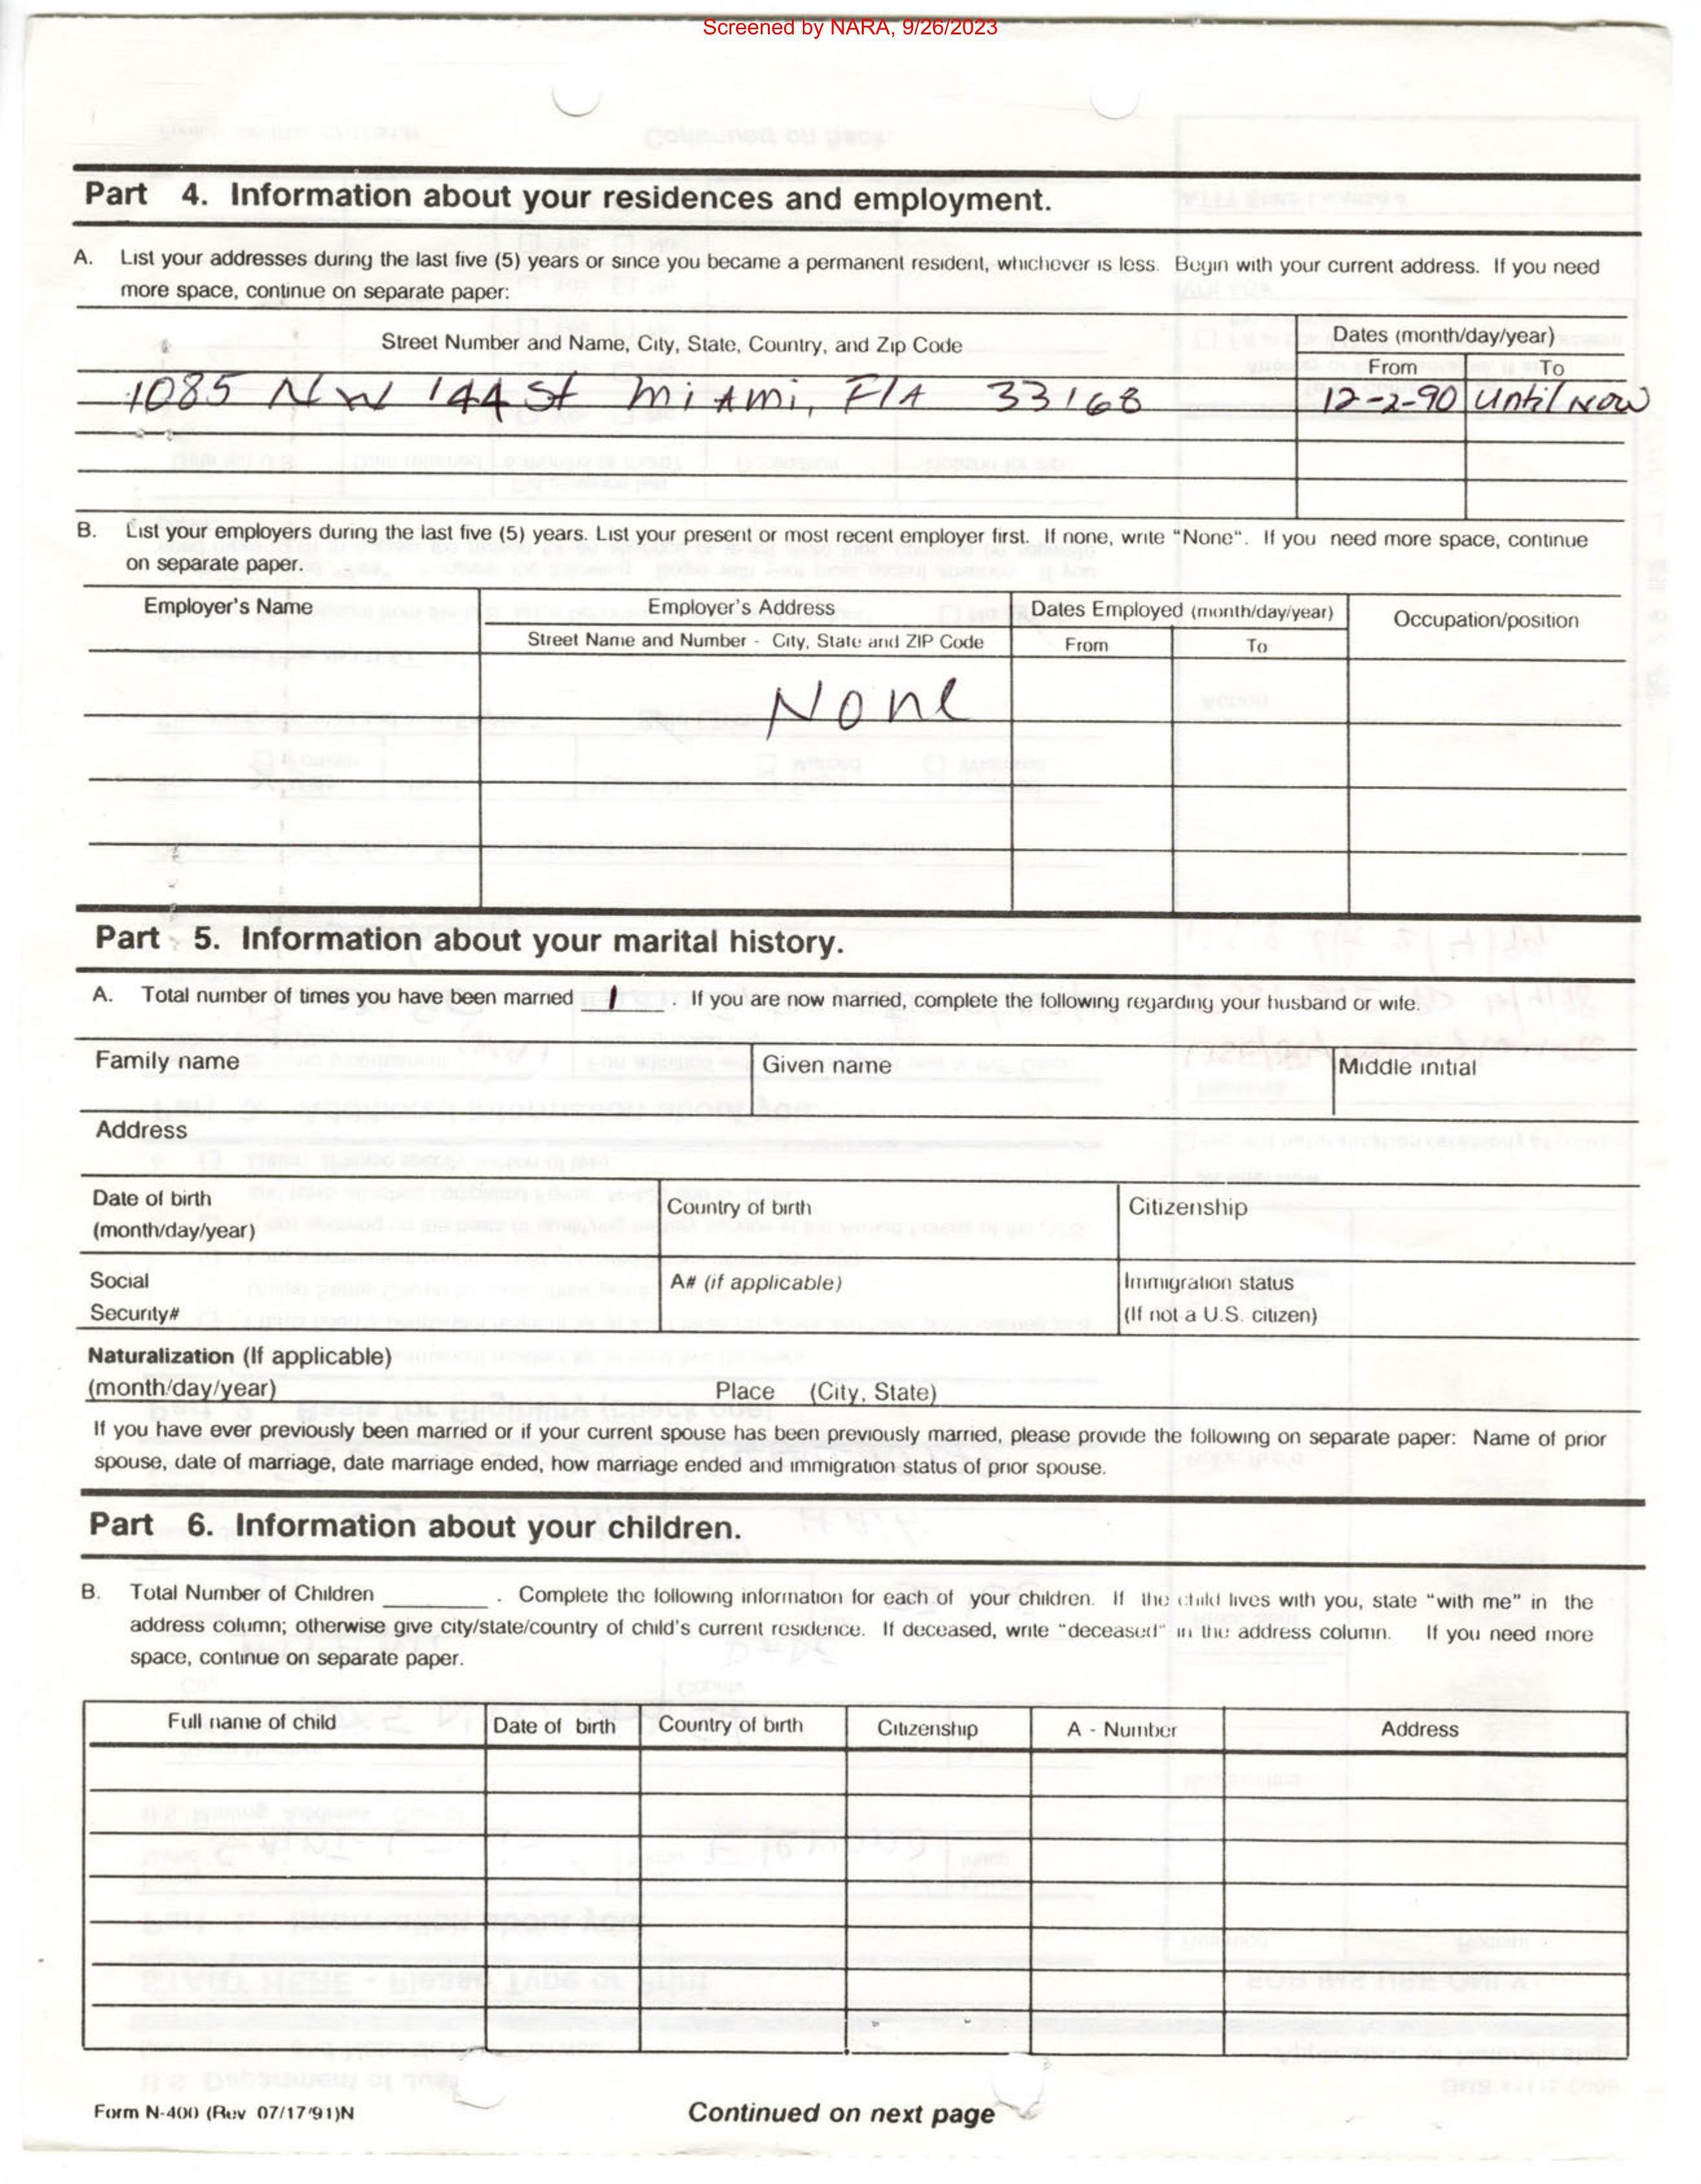 Screened by NARA, 9/26/2023
Part 4. Information about your residences and employment.
A. List your addresses during the last five (5) years or since you became a permanent resident, whichever is less. Begin with your current address. If you need
more space, continue on separate paper:
Street Number and Name, City, State, Country, and Zip Code
Dates (month/day/year)
From To
1085 NW 144 St Miami, FlA 33168 12-2-90 Until Now
B. List your employers during the last five (5) years. List your present or most recent employer first. If none, write "None". If you need more space, continue
on separate paper.
Employer's Name Employer's Address Dates Employed (month/day/year) Occupation/position
Street Name and Number - City, State and ZIP Code From To
None
Part 5. Information about your marital history.
A. Total number of times you have been married 1 . If you are now married, complete the following regarding your husband or wife.
Family name Given name Middle initial
Address
Date of birth
(month/day/year)
Country of birth
Citizenship
Social
Security#
A# (if applicable)
Immigration status
(If not a U.S. citizen)
Naturalization (If applicable)
(month/day/year) Place (City, State)
If you have ever previously been married or if your current spouse has been previously married, please provide the following on separate paper: Name of prior
spouse, date of marriage, date marriage ended, how marriage ended and immigration status of prior spouse.
Part 6. Information about your children.
B. Total Number of Children ________ . Complete the following information for each of your children. If the child lives with you, state "with me" in the
address column; otherwise give city/state/country of child's current residence. If deceased, write "deceased" in the address column. If you need more
space, continue on separate paper.
Full name of child Date of birth Country of birth Citizenship A - Number Address
Form N-400 (Rev 07/17/91)N
Continued on next page